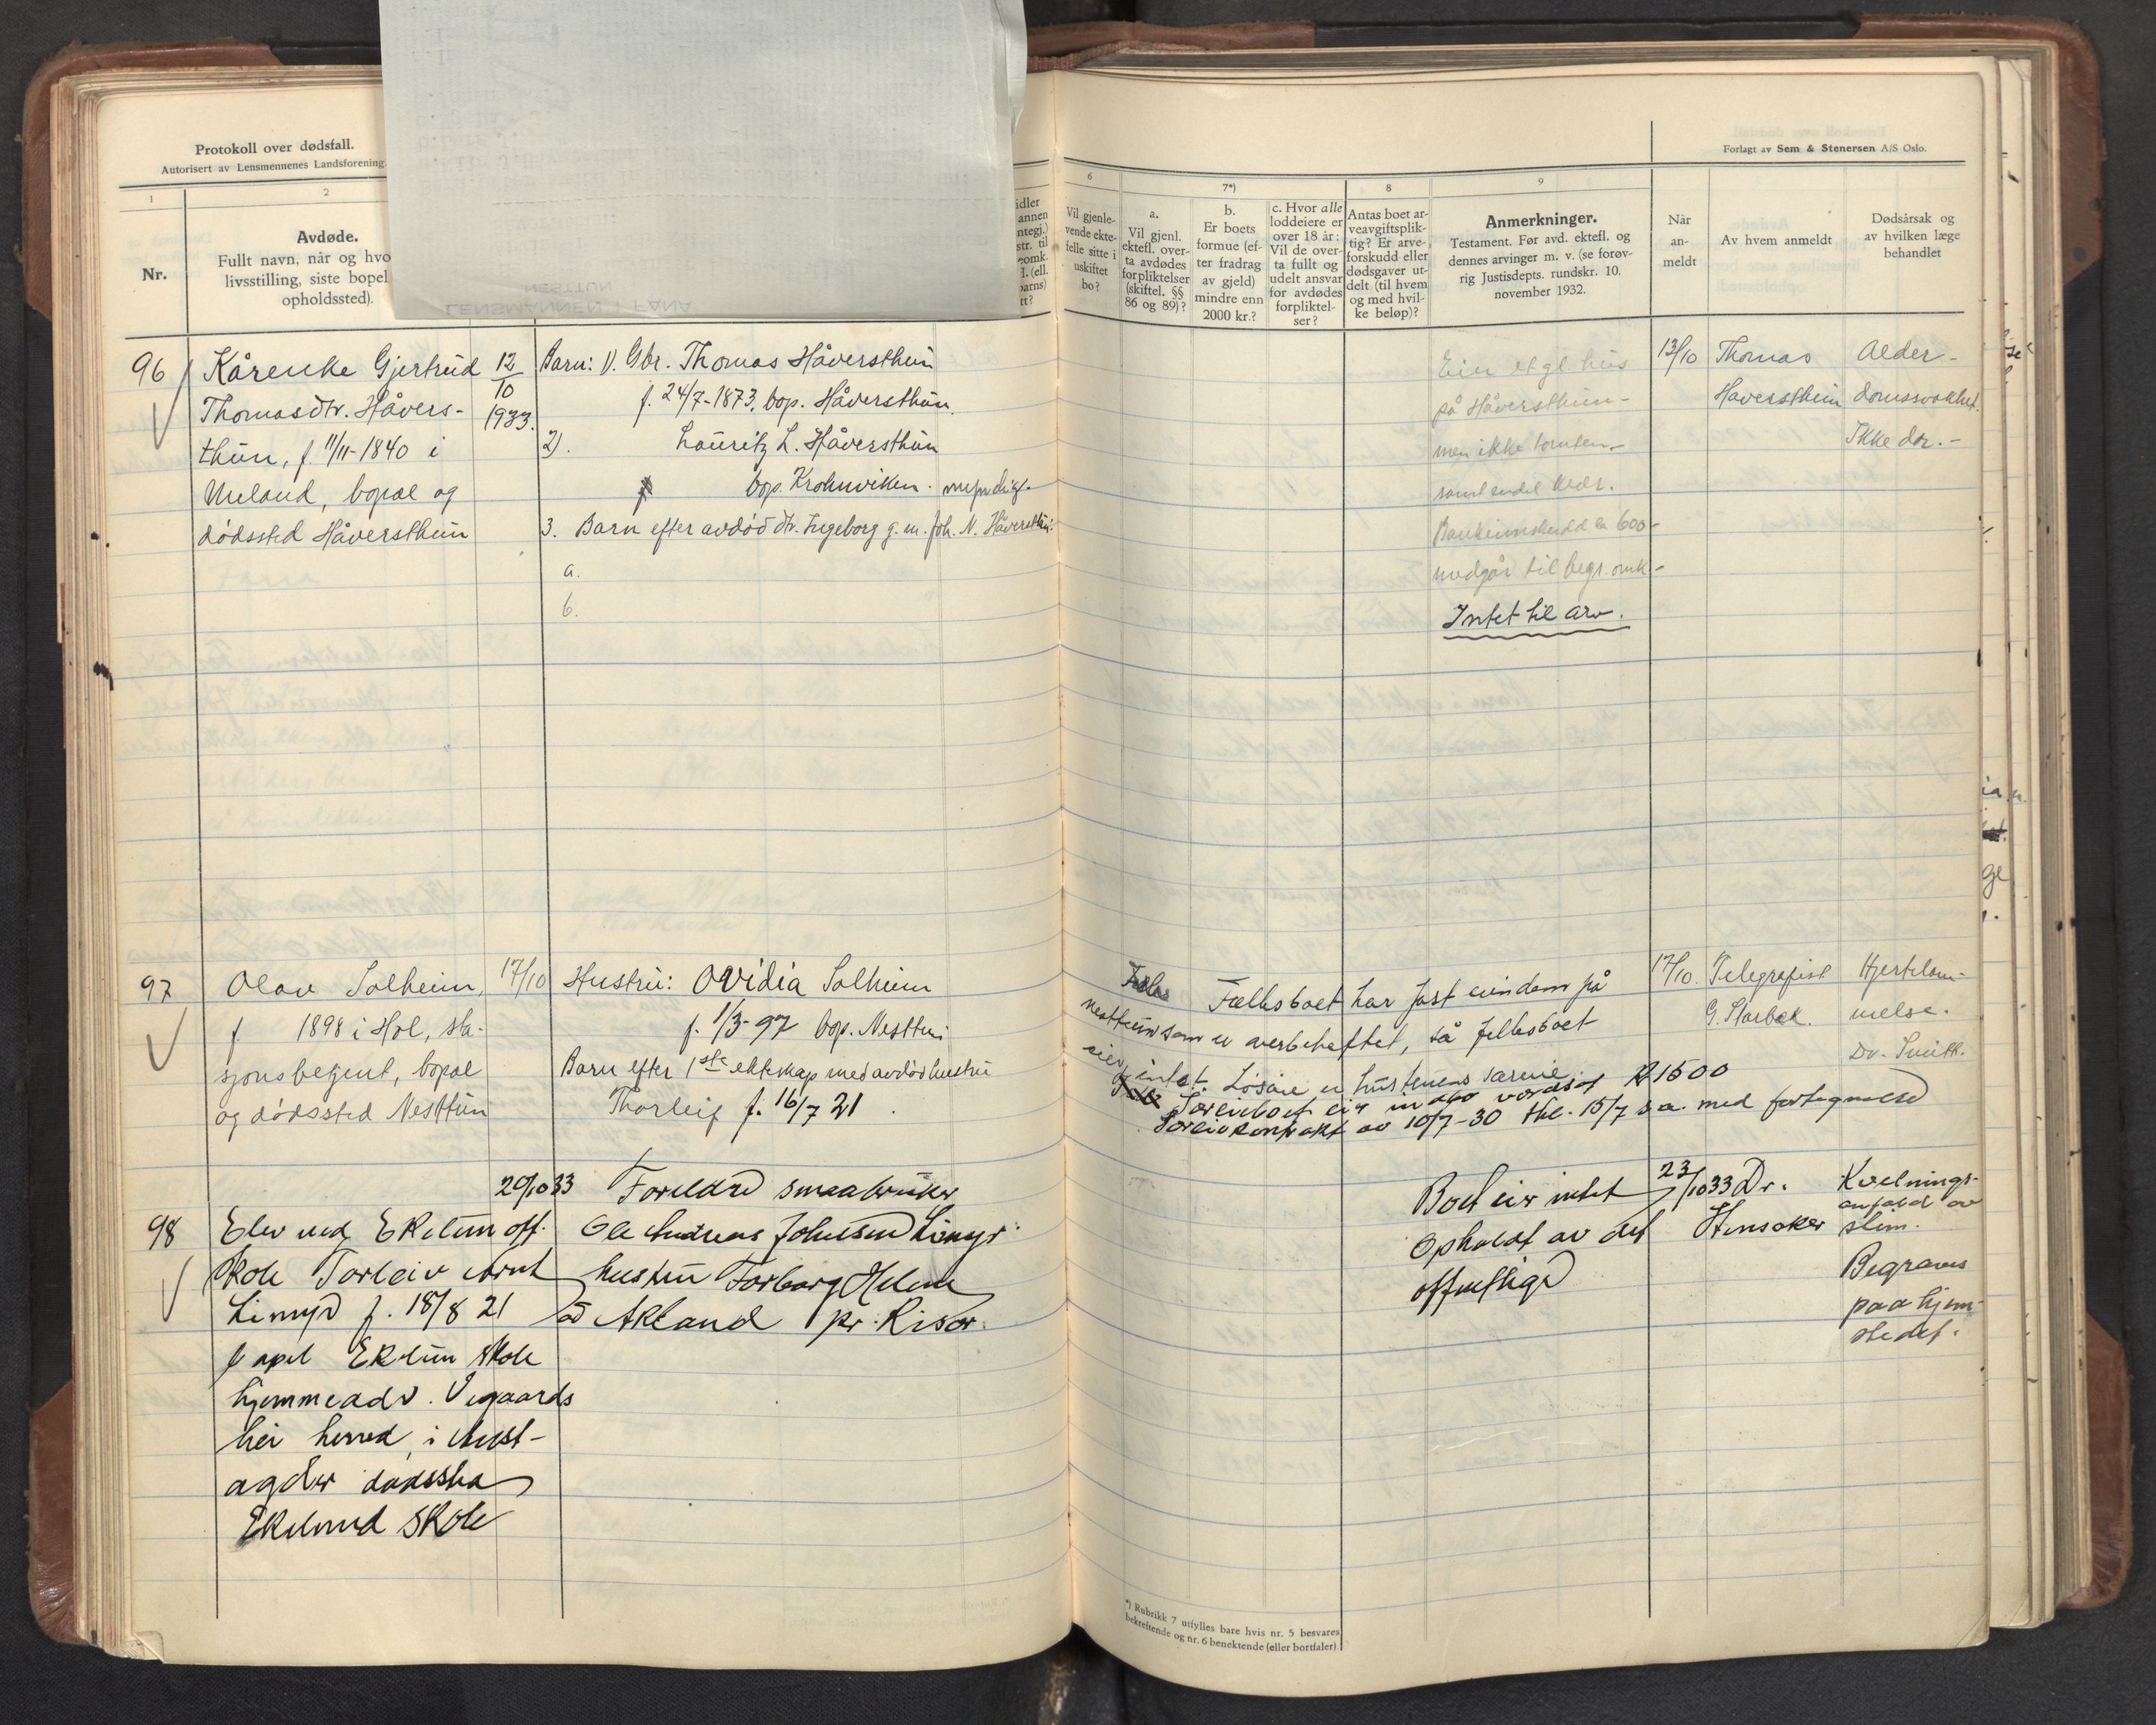 Protokoll over dødsfall.
Autorisert av Lensmennenes Landsforening.
Forlagt av Sem & Stenersen A/S Oslo.
1
2
Nr.
Avdøde.
Fullt navn, når og hvo
livsstilling, siste bopel
opholdssted).
NESTTUN
LENSMANNEN I FANA
idler
annen
ntegj.)
str. til
omk.
l. (ell.
barns)
tt?
6
Vil gjenle-
vende ekte-
felle sitte i
uskiftet
bo?
7*)
a.
Vil gjenl.
ektefl. over-
ta avdødes
forpliktelser
(skiftel. §§
86 og 89)?
b.
Er boets
formue (ef-
ter fradrag
av gjeld)
mindre enn
2000 kr.?
c. Hvor alle
loddeiere er
over 18 år:
Vil de over-
ta fullt og
udelt ansvar
for avdødes
forpliktel-
ser?
8
Antas boet ar-
veavgiftsplik-
tig? Er arve-
forskudd eller
dødsgaver ut-
delt (til hvem
og med hvil-
ke beløp)?
9
Anmerkninger.
Testament. Før avd. ektefl. og
dennes arvinger m. v. (se forøv-
rig Justisdepts. rundskr. 10.
november 1932.
Når
an-
meldt
Av hvem anmeldt
Dødsårsak og
av hvilken læge
behandlet
96
Kårenke Gjertrud
Thomasdtr. Håvers-
thun, f. 11/11-1840 i
Urland, bopæl og
dødssted Håversthun
Fana
12/10
1933.
Barn: 1). Gbr. Thomas Håversthun
f. 24/7-1873, bop. Håversthun.
2). Lauritz L. Håversthun
bop. Krohnviken. myndig.
3. Barn efter avdød dtr. Ingeborg g. m. Joh. N. Håversthun:
a.
b.
Eier et gl. hus
på Håversthun-
men ikke tomten-
samt endel klær.
Bankinnskudd ca 600-
medgår til begr. omk-
Intet til arv.
13/10
Thomas
Haversthun
Alder-
domssvakhet.
Ikke dr.-
97
Olav Solheim,
f. 1898 i Hol, sta-
sjonsbetjent, bopæl
og dødssted Nesttun
17/10
Hustru: Ovidia Solheim
f. 1/3-97 bop. Nesttun
Barn efter 1ste ekteskap med avdød hustru
Thorleif f. 16/7 21.
Fællesboet har fast eiendom på
Nesttun som er overbeheftet, så fellesboet
eier intet. Løsøre er hustruens særeie.
Særeieboet eier indbo verdsat kr 1500
Særeiekontrakt av 10/7-30 thl. 15/7 s.a. med fortegnelse
17/10.
Telegrafist
G. Storbæk.
Hjertelam-
melse.
Dr. Smith.
98
Elev ved Ekelun off.
skole Torleiv Arnt
Limyr f. 18/8 21
bopel Eklun skole
hjemmeadr. Vegaards
hei herred i Aust-
agder dødssted
Ekelund skole
20/10 33
Foreldre smaabruker
Ole Andreas Johnsen Limyr
hustru Torborg Helene
Akland pr. Risør.
Boet eier intet
Opholdt av det
offentlige
23/10 33
Dr.
Stensaker
Kvelnings-
anfald av
slim.
Begraves
paa hjem-
stedet.
*) Rubrikk 7 utfylles bare hvis nr. 5 besvares
bekreftende og nr. 6 benektende (eller bortfaler)